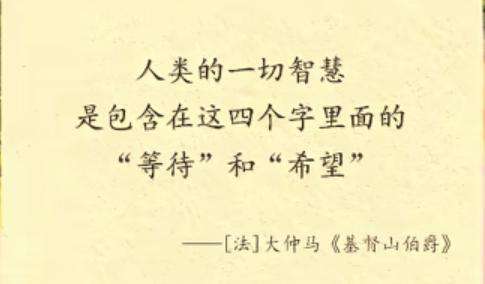 人类的一切智慧
是包含在这四个字里面的
“等待”和“希望”
——[法]大仲马《基督山伯爵》